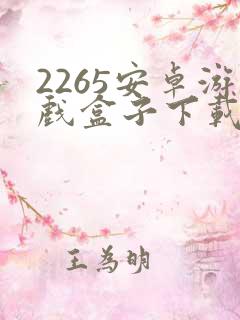 2265安卓游
戏盒子下載
王為明